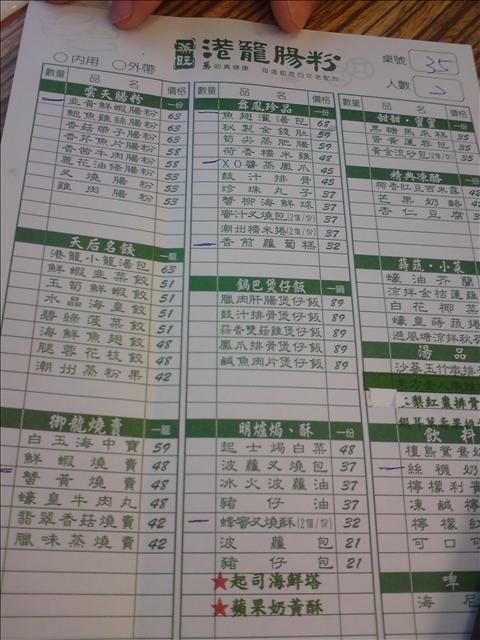 蒸旺 港籠腸粉
蒸的真健康
○內用 ○外帶
桌號 35
人數 2
數量 品名 價格
雲天腸粉 一份
韭黃鮮蝦腸粉 63
鮑魚雞絲腸粉 63
香菇帶子腸粉 63
香芹魚片腸粉 58
香茜牛肉腸粉 58
蔥花油條腸粉 58
叉燒腸粉 53
雞肉腸粉 53
天后名餃 一籠
港龍小籠湯包 63
鮮蝦韭菜餃 51
玉筍鮮蝦餃 51
水晶海皇餃 51
碧綠菠菜餃 51
海鮮魚翅餃 48
腿蓉花枝餃 48
潮州蒸粉果 42
御龍燒賣 一籠
白玉海中寶 59
鮮蝦燒賣 48
蟹黃燒賣 48
蠔皇牛肉丸 48
翡翠香菇燒賣 42
臘味蒸燒賣 42
數量 品名 價格
舞鳳珍品 一份
魚翅灌湯包 68
秋製金錢肚 59
筍尖蒸肥腸 59
荷香糯米雞 48
XO醬蒸鳳爪 45
豉汁排骨 45
珍珠丸子 37
蟹柳海鮮球 37
蜜汁叉燒包(2個/份) 37
潮州糯米捲(2個/份) 37
香煎蘿蔔糕 32
鍋巴煲仔飯 一鍋
臘肉肝腸煲仔飯 89
豉汁排骨煲仔飯 89
蒜香雙菇雞煲仔飯 89
鳳爪排骨煲仔飯 89
鹹魚肉片煲仔飯 89
明爐焗、酥 一份
起士焗白菜 48
波蘿叉燒包 37
冰火波蘿油 37
豬仔油 37
蜂蜜叉燒酥(2個/份) 32
波蘿包 21
豬仔包 21
★起司海鮮塔
★蘋果奶黃酥
數量 品名 價格
甜甜·蜜蜜 一份
黑糖馬來糕 35
香黃蓮蓉包 35
黃金流沙包(2個/份) 35
精典凍酪
椰香紅豆西米露
芒果奶酪
杏仁豆腐
蒔蔬·小菜
蠔油芥蘭
涼拌金桔蓮藕
白花椰菜
蠔皇蒔蔬捲
避風塘涼拌秋
湯品
沙蔘玉竹燉排
飲料
檀島鴛鴦奶
絲襪奶
檸檬利賓
凍鹹檸
檸檬紅
可口可
啤
海尼